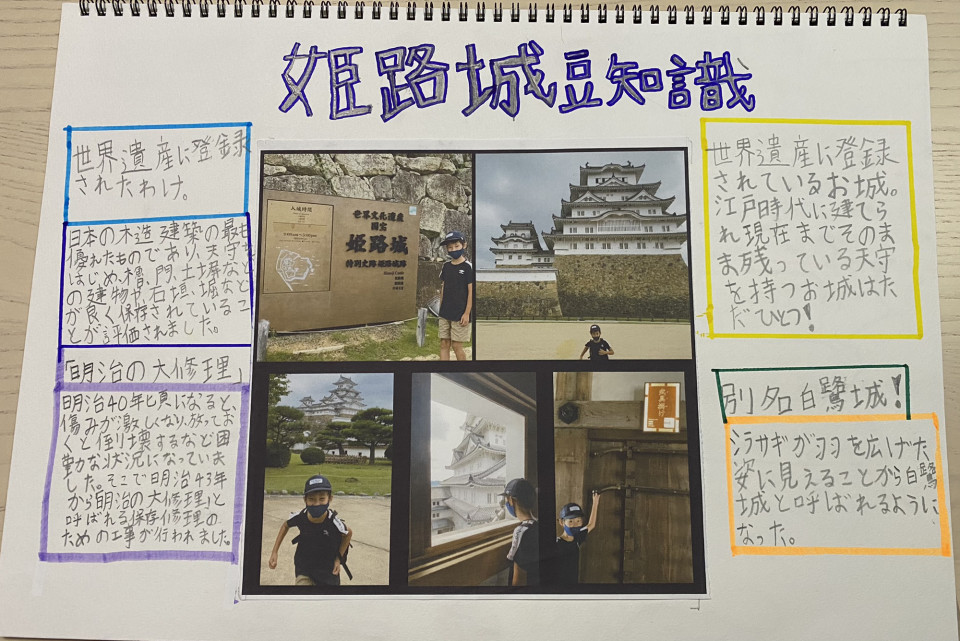 姫路城豆知識
世界遺産に登録
されたわけ。
日本の木造建築の最も
優れたものであり、天守を
はじめ櫓、門、土塀など
の建物や石垣、堀など
が良く保存されているこ
とが評価されました。
「明治の大修理」
明治40年頃になると
傷みが激しくなり、放ってお
くと倒り壊するなど困
動な状況になっていま
した。そこで明治43年
から「明治の大修理」と
呼ばれる保存修理の
ための工事が行われました。
入城時間
世界文化遺産
国宝
姫路城
特別史跡 姫路城跡
Himeji Castle
世界遺産に登録
されているお城。
江戸時代に建てら
れ現在までそのま
ま残っている天守
を持つお城はた
だひとつ!
別名白鷺城!
シラサギが羽を広げた
姿に見えることから白鷺
城と呼ばれるように
なった。